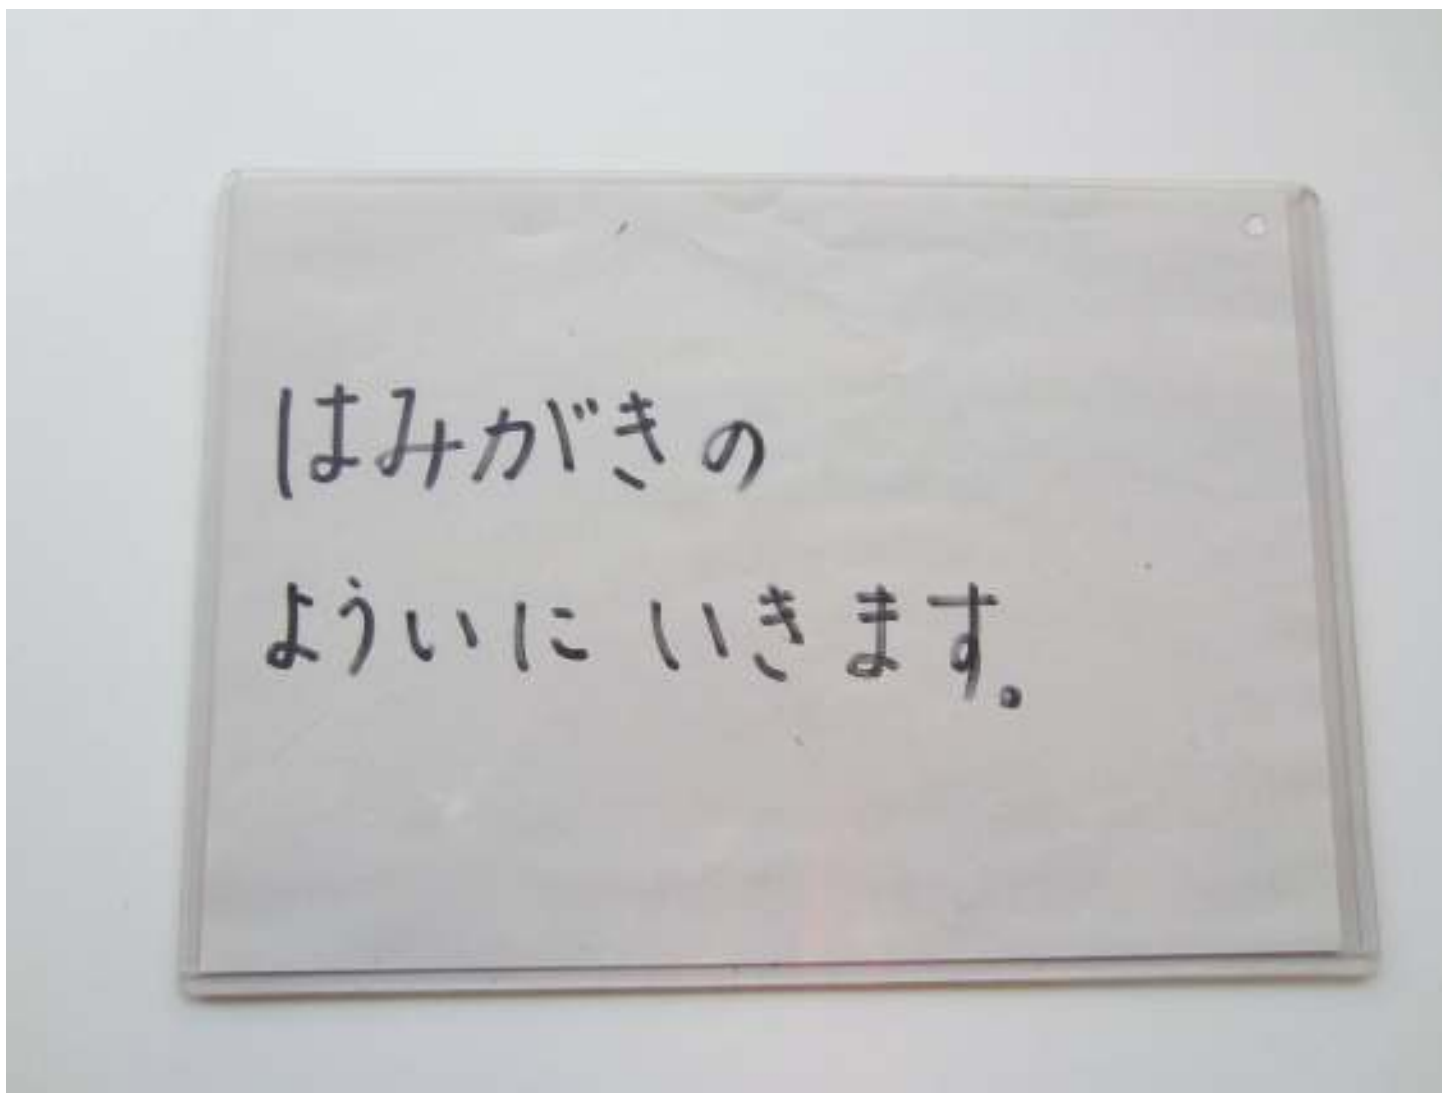 はみがきの
よういに いきます。